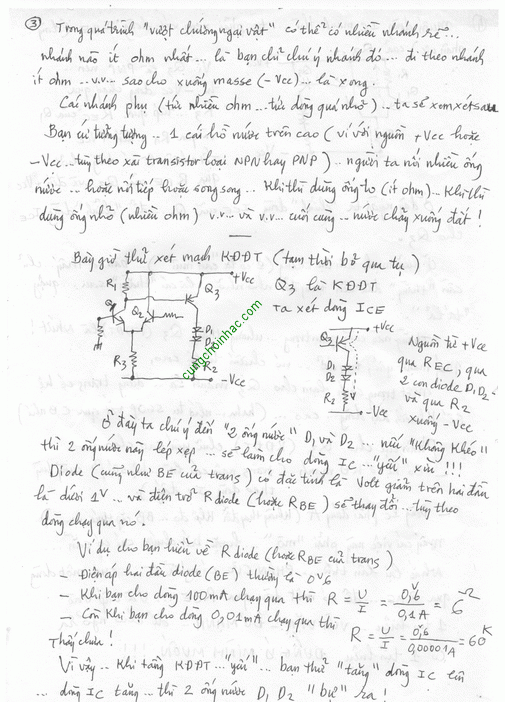 ③ Trong quá trình "vượt chướng ngại vật" có thể có nhiều nhánh rẽ...
nhánh nào ít ohm nhất... là bạn chỉ chú ý nhánh đó... đi theo nhánh
ít ohm... v.v... sao cho xuống masse (-Vcc)... là xong.
Các nhánh phụ (tức nhiều ohm... tức dòng quá nhỏ).. ta sẽ xem xét sau
Bạn cứ tưởng tượng.. 1 cái hồ nước trên cao (ví với nguồn +Vcc hoặc
-Vcc... tùy theo xài transistor loại NPN hay PNP).. người ta nối nhiều ống
nước... hoặc nối tiếp hoặc song song.. Khi thì dùng ống to (ít ohm)... Khi thì
dùng ống nhỏ (nhiều ohm) v.v... và v.v... cuối cùng.. nước chảy xuống đất!
Bây giờ thử xét mạch KĐĐT (tạm thời bỏ qua tụ)
+Vcc
R1
Q3
Q2
D1
D2
R3
R2
-Vcc
Q3 là KĐĐT
ta xét dòng ICE
+Vcc
Q3
D1
D2
R2
-Vcc
Nguồn từ +Vcc
qua REC, qua
2 con diode D1D2
và qua R2
xuống -Vcc
cungchoinhac.com
Ở đây ta chú ý đến "2 ống nước" D1 và D2... nếu "không khéo"
thì 2 ống nước này lép xẹp... sẽ làm cho dòng IC..."yếu" xìu!!!
Diode (cũng như BE của trans) có đặc tính là Volt giảm trên hai đầu
là dưới 1V.. và điện trở Rdiode (hoặc RBE) sẽ thay đổi...tùy theo
dòng chạy qua nó.
Ví dụ cho bạn hiểu về Rdiode (hoặc RBE của trans)
- Điện áp hai đầu diode (BE) thường là 0V6
- Khi bạn cho dòng 100mA chạy qua thì R = U/I = 0,6V/0,1A = 6Ω
- Còn khi bạn cho dòng 0,01mA chạy qua thì
R = U/I = 0,6V/0,00001A = 60K
Thấy chưa!
Vì vậy.. Khi tầng KĐĐT "yếu"... bạn thử "tăng" dòng IC lên
... dòng IC tăng... thì 2 ống nước D1 D2 "bự" ra!